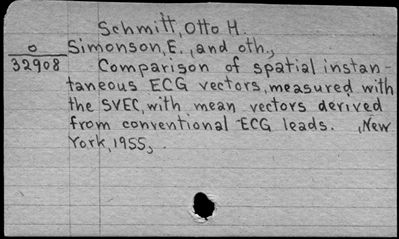 Schmitt, Otto H.
o Simonson, E., and oth.,
32908 Comparison of spatial instan-
taneous ECG vectors, measured with
the SVEC, with mean vectors derived
from conventional ECG leads. , New
York, 1955, .